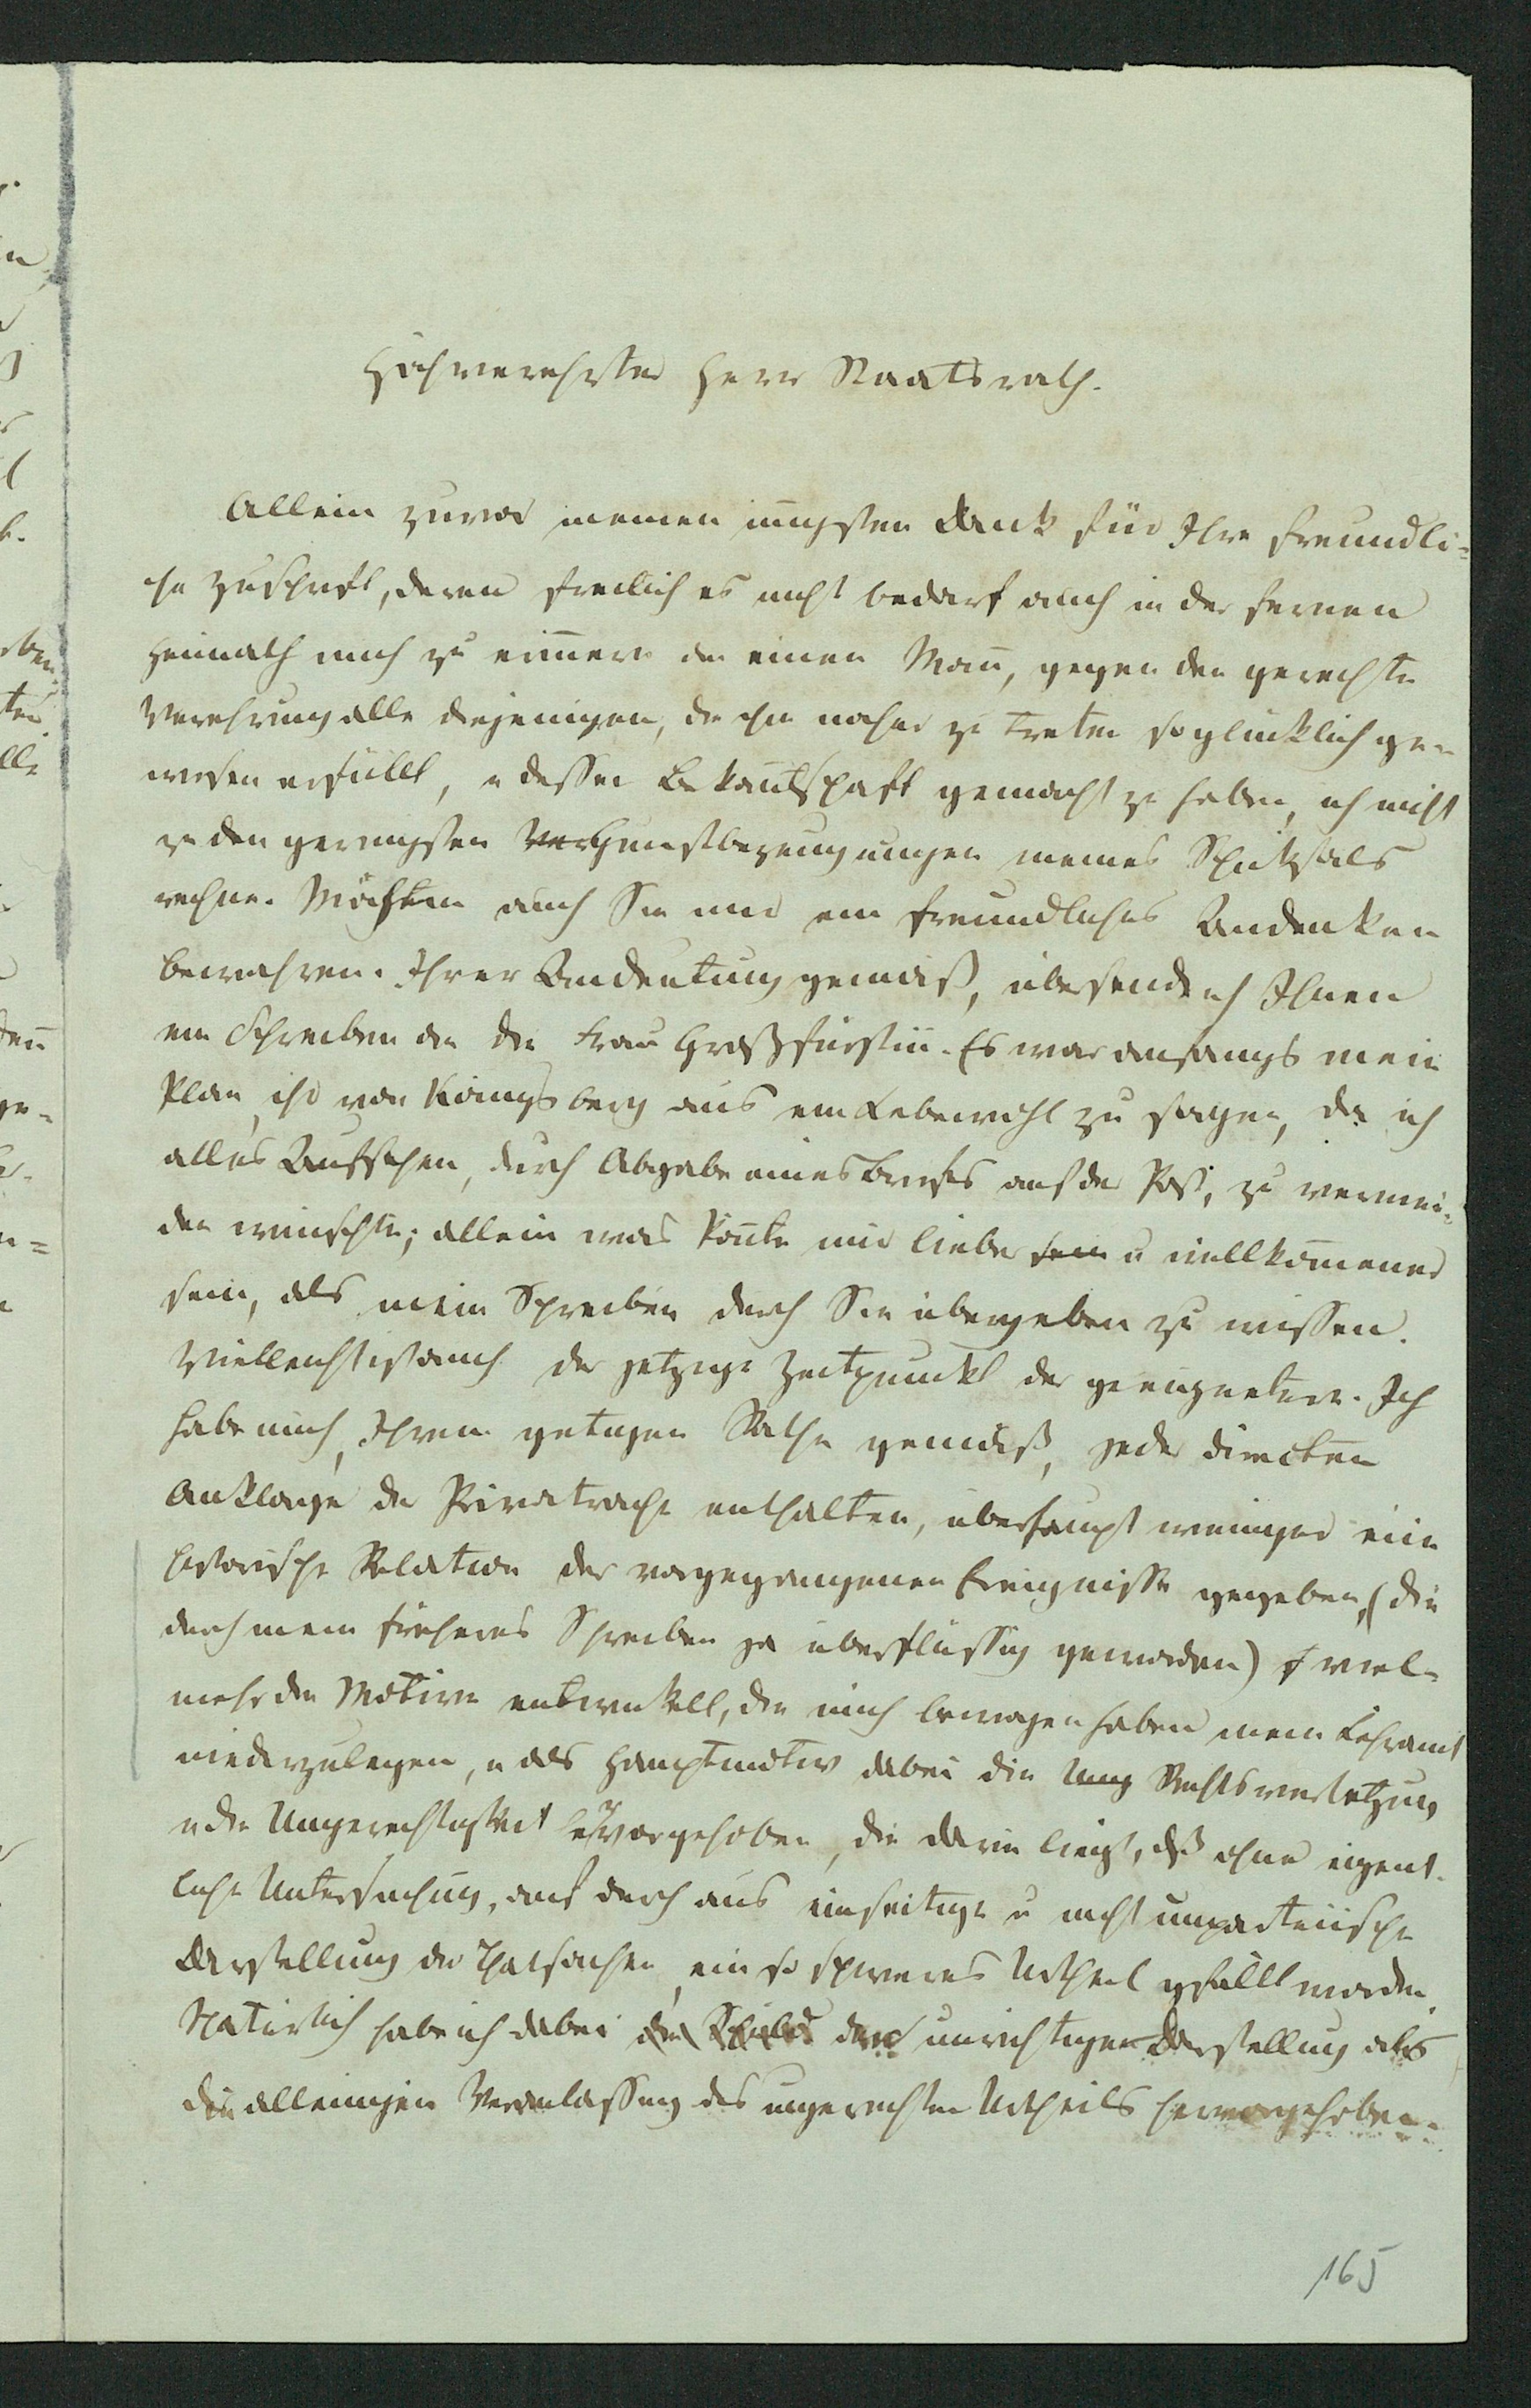 Hochverehrter Herr Staatsrath.
Allem zuvor meinen innigsten Dank für Ihre freundli-
che Zuschrift, deren freilich es nicht bedarf auch in der fernen
Heimath mich zu erinnern an einen Mann, gegen den gerechte
Verehrung alle diejenigen, die ihm näher zu treten so glücklich ge-
wesen erfüllt, u dessen Bekantschaft gemacht zu haben, ich nicht
zu den geringsten Gunstbezeugungen meines Schicksals
rechne. Möchten auch Sie mir ein freundliches Andenken
bewahren. Ihrer Andeutung gemäß, übersende ich Ihnen
ein Schreiben an die Frau Großfürstin. Es war anfangs mein
Plan, ihr von Königsberg aus ein Lebewohl zu sagen, da ich
alles Aufsehen, durch Abgabe eines Briefes auf der Post, zu vermei-
den wünschte; allein was könnte mir lieber sein u willkommener
sein, als mein Schreiben durch Sie übergeben zu wissen.
Vielleicht ist auch der jetzige Zeitpunkt der geeignetere. Ich
habe mich, Ihrem gütigen Rathe gemäß, jeder directen
Anklage der Privatrache enthalten, überhaupt weniger eine
historische Relation der vorgegangenen Ereignisse gegeben, (die
durch mein früheres Schreiben ja überflüssig geworden) viel-
mehr die Motive entwickelt, die mich bewogen haben mein Lehramt
niederzulegen, u als Hauptmotiv dabei die Ung Rechtsverletzung
u die Ungerechtigkeit hervorgehoben, die darin liegt, daß ohne eigent-
liche Untersuchung, auf durchaus einseitige u nicht unparteiische
Darstellung der Thatsachen, ein so schweres Urtheil gefällt worden.
Natürlich habe ich dabei die der unrichtigen Darstellung als
die alleinigen Veranlassung des ungerechten Urtheils hervorgehoben.
165